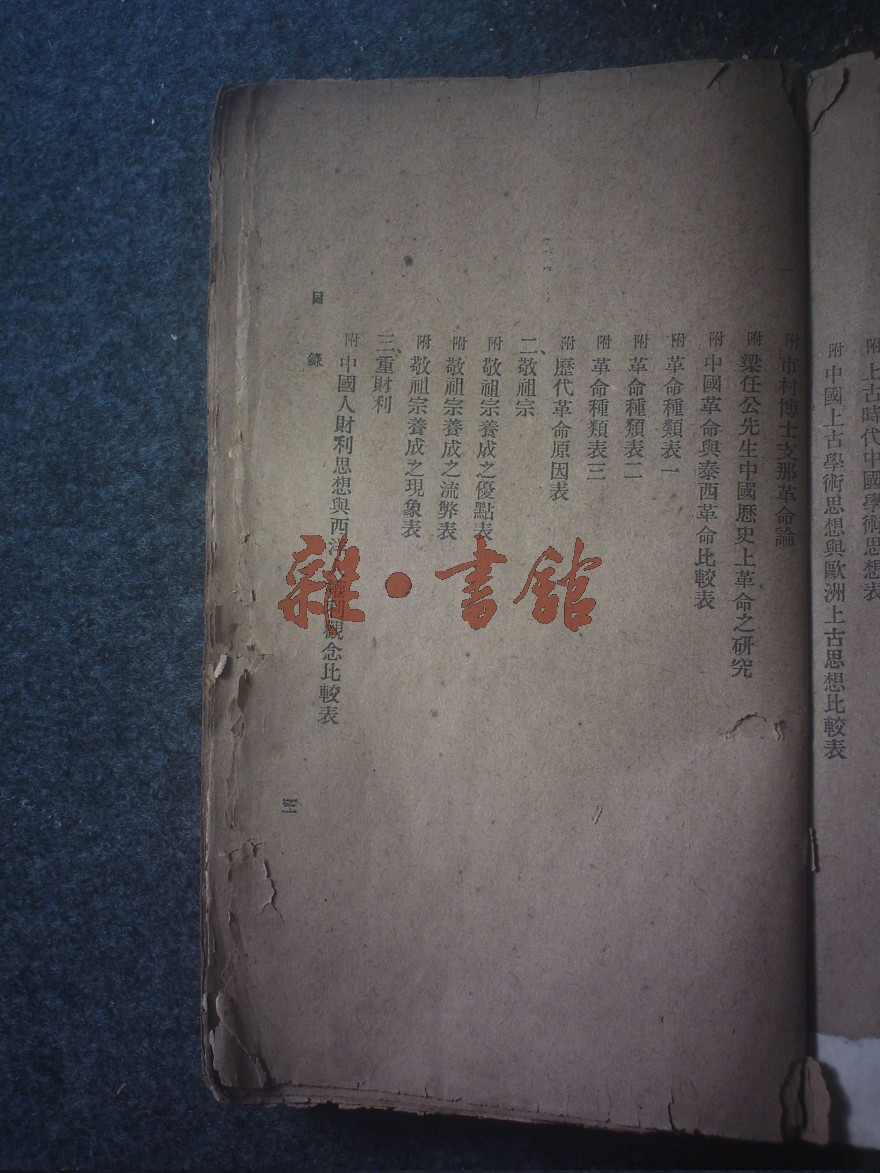 附 上古時代中國學術思想表
附 中國上古學術思想與歐洲上古思想比較表
附 市村博士支那革命論
附 梁任公先生中國歷史上革命之研究
附 中國革命與泰西革命比較表
附 革命種類表一
附 革命種類表二
附 革命種類表三
附 歷代革命原因表
二、敬祖宗
附 敬祖宗養成之優點表
附 敬祖宗養成之流弊表
附 敬祖宗養成之現象表
三、重財利
附 中國人財利思想與西洋人權利觀念比較表
目錄
三
雜·書館